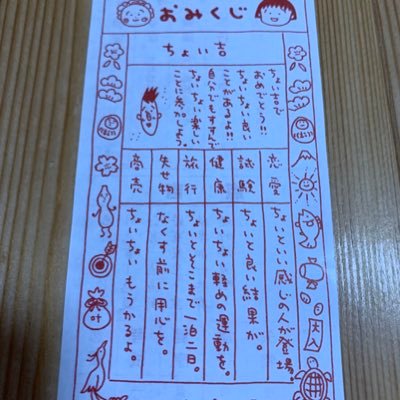 おみくじ
ちょい吉
ちょい吉で
おめでとう!!
ちょいちょい良い
ことがあるよ!!
自分でもすすんで
ちょいちょい楽しい
ことに参加しよう。
恋愛
ちょいといい感じの人が登場。
試験
ちょいと良い結果が。
健康
ちょいちょい軽めの運動を。
旅行
ちょいとそこまで一泊二日。
失せ物
なくす前に用心を。
商売
ちょいちょいもうかるよ。
叶
大入